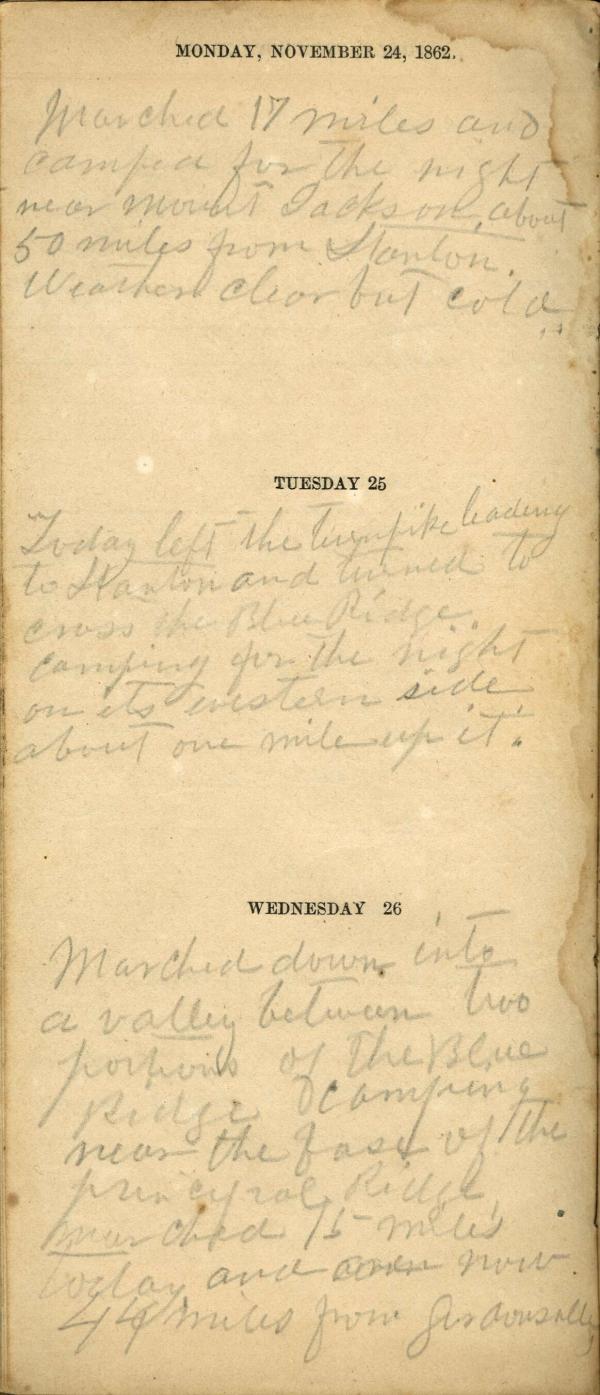 MONDAY, NOVEMBER 24, 1862.
Marched 17 miles and
camped for the night
near mount Jackson, about
50 miles from Stanton.
Weather clear but cold
TUESDAY 25
Today left the turnpike leading
to Stanton and turned to
cross the Blue Ridge.
camping for the night
on its western side
about one mile up it.
WEDNESDAY 26
Marched down into
a valley between two
portions of the Blue
Ridge camping
near the base of the
principal Ridge
marched 15 miles
today and now
44 miles from Gordonsville